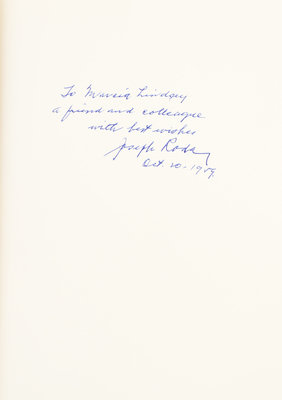 To Marcia Lindsey
a friend and colleague
with best wishes
Joseph
Oct. 10 - 19